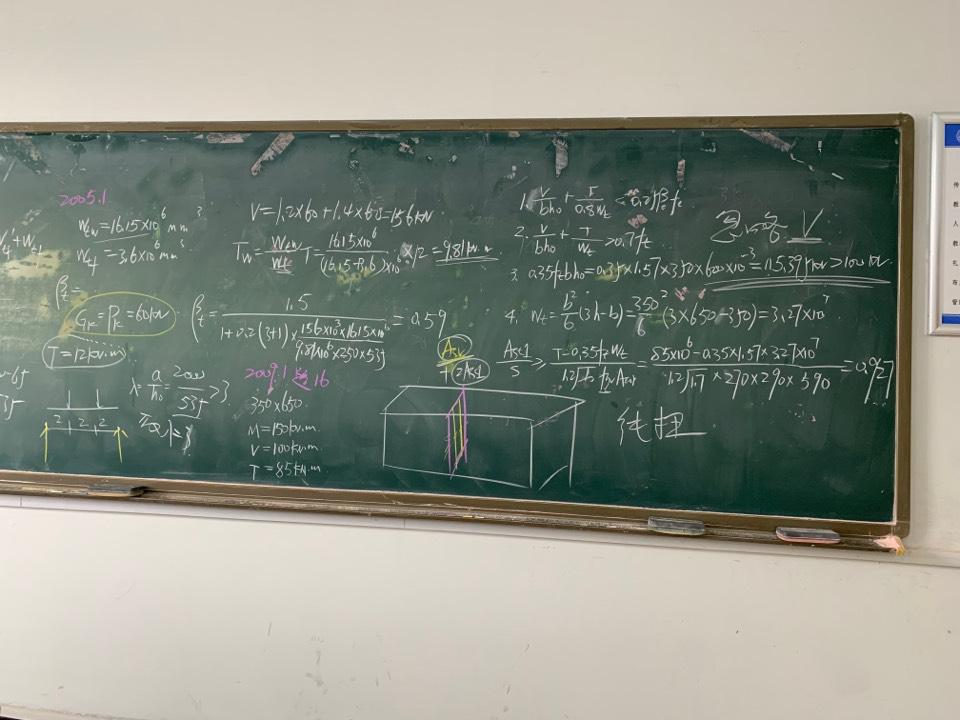 2005.1
W_tw = 16.15×10⁶ mm³
W_tf = 3.6×10⁶ mm³
β_t =
G_k = P_k = 60kN
T = 12kN.m
V = 1.2×60 + 1.4×60 = 156kN
T_w = W_tw/W_t T = 16.15×10⁶/(16.15+3.6)×10⁶ × 12 = 9.81kN.m
β_t = 1.5/(1+0.2(3+1)×156×10³×16.15×10⁶/9.81×10⁶×250×535) = 0.59
λ = a/h₀ = 2000/535 > 3
取λ=3
2 2 2
2009.1 题16
350×650
M = 150kN.m
V = 100kN.m
T = 85kN.m
1. V/bh₀ + T/0.8W_t ≤ 0.25β_c f_c
2. V/bh₀ + T/W_t > 0.7f_t
忽略 V
3. 0.35f_t bh₀ = 0.35×1.57×350×600×10⁻³ = 115.395kN > 100kN
4. W_t = b²/6 (3h-b) = 350²/6 (3×650-350) = 3.27×10⁷
A_st1/s ≥ T-0.35f_t W_t/1.2√ζ f_yv A_cor = 85×10⁶-0.35×1.57×3.27×10⁷/1.2√1.7×270×290×590 = 0.927
2A_st1
纯扭